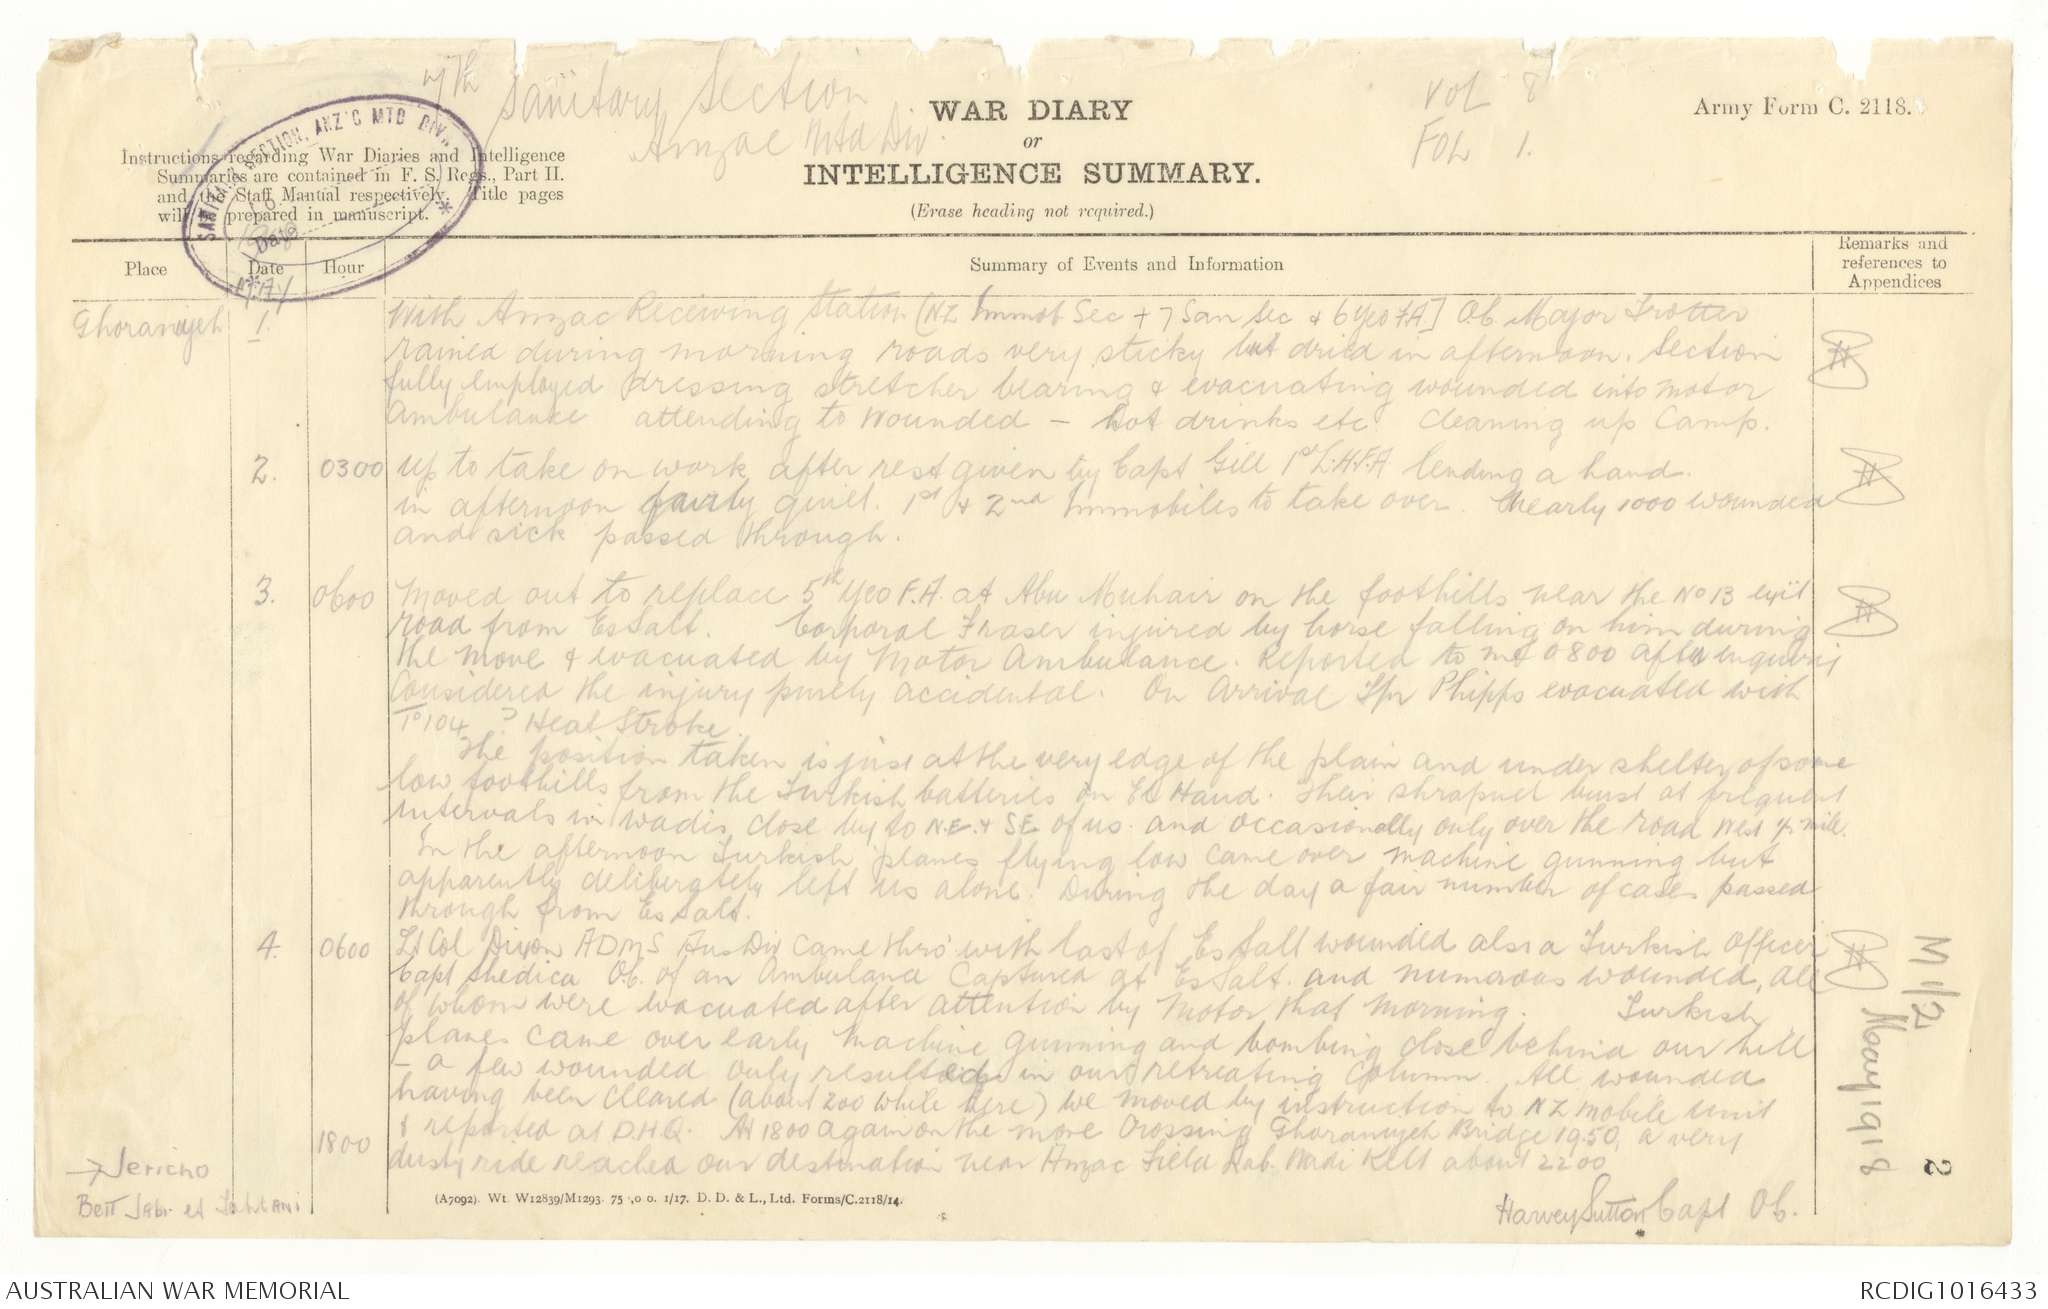 7th Sanitary Section
Anzac Mtd Div.
Vol 8
Fol 1.
WAR DIARY
or
INTELLIGENCE SUMMARY.
(Erase heading not required.)
Army Form C. 2118.
Instructions regarding War Diaries and Intelligence
Summaries are contained in F. S. Regs., Part II.
and the Staff Mantual respectively. Title pages
will be prepared in manuscript.
SANITARY SECTION, ANZ'C MTD DIV.
Date
1918
MAY
Place
Date
Hour
Summary of Events and Information
Remarks and
references to
Appendices
Ghoraniyeh 1. With Anzac Receiving Station [NZ Immob Sec + 7 San Sec & 6 Yeo FA] O.C. Major Trotter
rained during morning roads very sticky but dried in afternoon. Section
fully employed dressing stretcher bearing & evacuating wounded into motor
Ambulance attending to wounded - hot drinks etc cleaning up Camp.
2. 0300 Up to take on work after rest given by Capt Gill 1st L.H.F.A lending a hand.
in afternoon fairly quiet. 1st & 2nd Immobiles to take over. Nearly 1000 wounded
and sick passed through.
3. 0600 Moved out to replace 5th Yeo F.A. at Abu Muhair on the foothills near the No 13 exit
road from Es Salt. Corporal Fraser injured by horse falling on him during
the move & evacuated by Motor Ambulance. Reported to me 0800 after inquiry
Considered the injury purely accidental. On Arrival Tpr Phipps evacuated with
T° 104 ? Heat Stroke.
The position taken is just at the very edge of the plain and under shelter of some
low foothills from the Turkish batteries on El Haud. Their shrapnel burst at frequent
intervals in wadis close by to N.E. & SE of us. and occasionally only over the road West ½ mile.
In the afternoon Turkish planes flying low came over machine gunning but
apparently deliberately left us alone. During the day a fair number of cases passed
through from Es Salt.
4. 0600 Lt Col Dixon ADMS Aus Div came thro' with last of Es Salt wounded also a Turkish Officer
Capt Shedica O.C. of an Ambulance Captured at Es Salt. and numerous wounded, all
of whom were evacuated after attention by Motor that morning. Turkish
planes came over early Machine gunning and bombing close behind our hill
- a few wounded only resulted in our retreating column. All wounded
having been cleared (about 200 while here) we moved by instruction to NZ Mobile Unit
1800 & reported at D.H.Q. At 1800 again on the move Crossing Ghoraniyeh Bridge 1950, a very
dusty ride reached our destination near Anzac Field Lab. Wadi Kelt about 2200
→ Jericho
Beit Jabr et Tahtani
(A7092). Wt. W12839/M1293. 75 ,0 0. 1/17. D. D. & L., Ltd. Forms/C.2118/14.
Harvey Sutton Capt O.C.
M 1/2
May 1918
2
AUSTRALIAN WAR MEMORIAL
RCDIG1016433